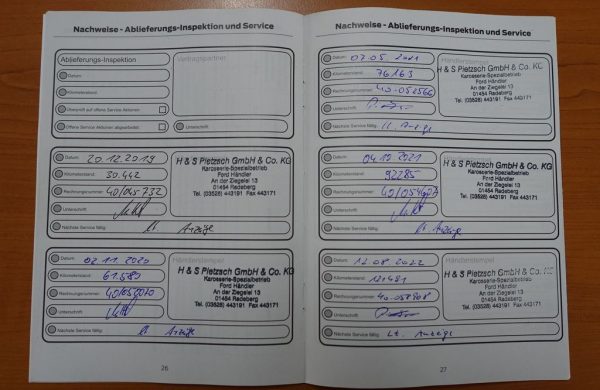 Nachweise - Ablieferungs-Inspektion und Service
Ablieferungs-Inspektion
Vertragspartner
Datum:
Kilometerstand:
Überprüft auf offene Service Aktionen
Offene Service Aktionen abgearbeitet
Unterschrift:
Datum: 20.12.2019
Kilometerstand: 30.442
Rechnungsnummer: 40/045732
Unterschrift:
Nächste Service fällig: lt. Anzeige
H & S Pietzsch GmbH & Co. KG
Karosserie-Spezialbetrieb
Ford Händler
An der Ziegelei 13
01454 Radeberg
Tel. (03528) 443191 Fax 443171
Datum: 02.11.2020
Kilometerstand: 61.580
Rechnungsnummer:
Unterschrift:
Nächste Service fällig: lt. Anzeige
Händlerstempel
H & S Pietzsch GmbH & Co. KG
Karosserie-Spezialbetrieb
Ford Händler
An der Ziegelei 13
01454 Radeberg
Tel. (03528) 443191 Fax 443171
26
Nachweise - Ablieferungs-Inspektion und Service
Datum: 07.05.2021
Kilometerstand: 76163
Rechnungsnummer:
Unterschrift:
Nächste Service fällig: lt. Anzeige
Händlerstempel
H & S Pietzsch GmbH & Co. KG
Karosserie-Spezialbetrieb
Ford Händler
An der Ziegelei 13
01454 Radeberg
Tel. (03528) 443191 Fax 443171
Datum: 04.10.2021
Kilometerstand: 92285
Rechnungsnummer:
Unterschrift:
Nächste Service fällig: lt. Anzeige
H & S Pietzsch GmbH & Co. KG
Karosserie-Spezialbetrieb
Ford Händler
An der Ziegelei 13
01454 Radeberg
Tel. (03528) 443191 Fax 443171
Datum: 12.08.2022
Kilometerstand: 121481
Rechnungsnummer:
Unterschrift:
Nächste Service fällig: Lt. Anzeige
Händlerstempel
H & S Pietzsch GmbH & Co. KG
Karosserie-Spezialbetrieb
Ford Händler
An der Ziegelei 13
01454 Radeberg
Tel. (03528) 443191 Fax 443171
27